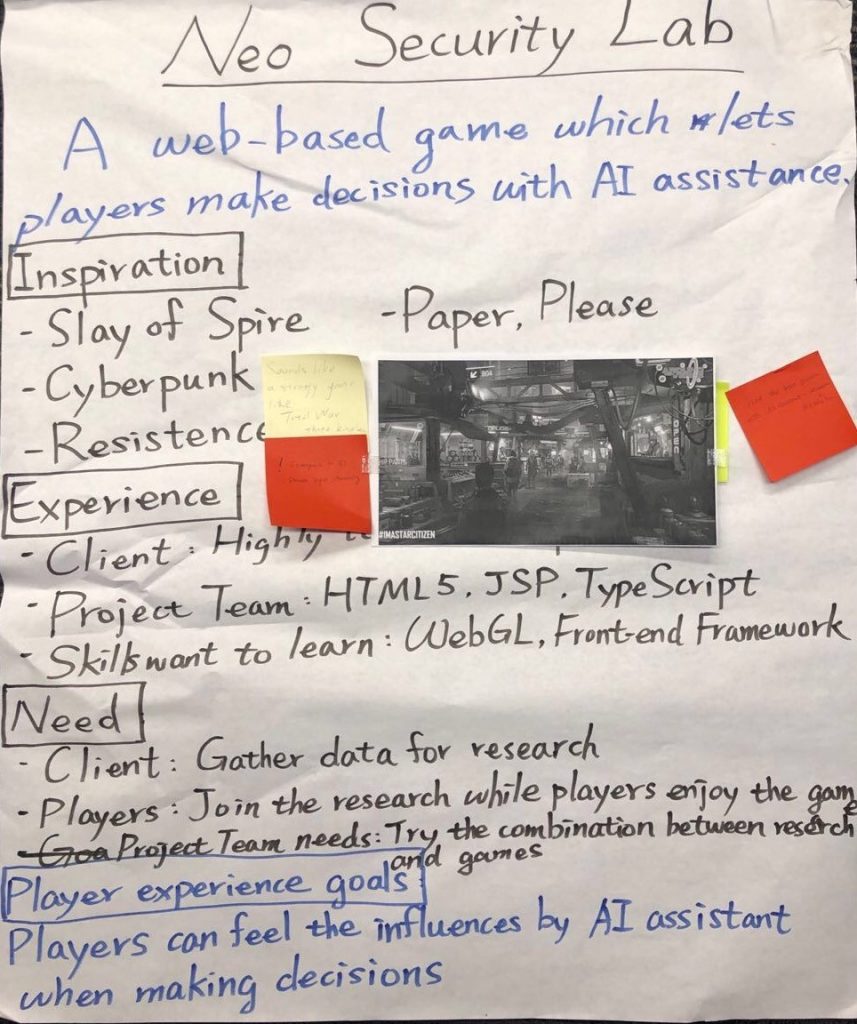 Neo Security Lab
A web-based game which lets
players make decisions with AI assistance.
Inspiration
- Slay of Spire
- Paper, Please
- Cyberpunk
- Resistence
Sounds like
a strategy game
like
Total War
#IMASTARCITIZEN
Experience
- Client : Highly
- Project Team : HTML5, JSP, TypeScript
- Skills want to learn : WebGL, Front-end Framework
Need
- Client : Gather data for research
- Players : Join the research while players enjoy the game
- Goa Project Team needs: Try the combination between research
and games
Player experience goals
Players can feel the influences by AI assistant
when making decisions